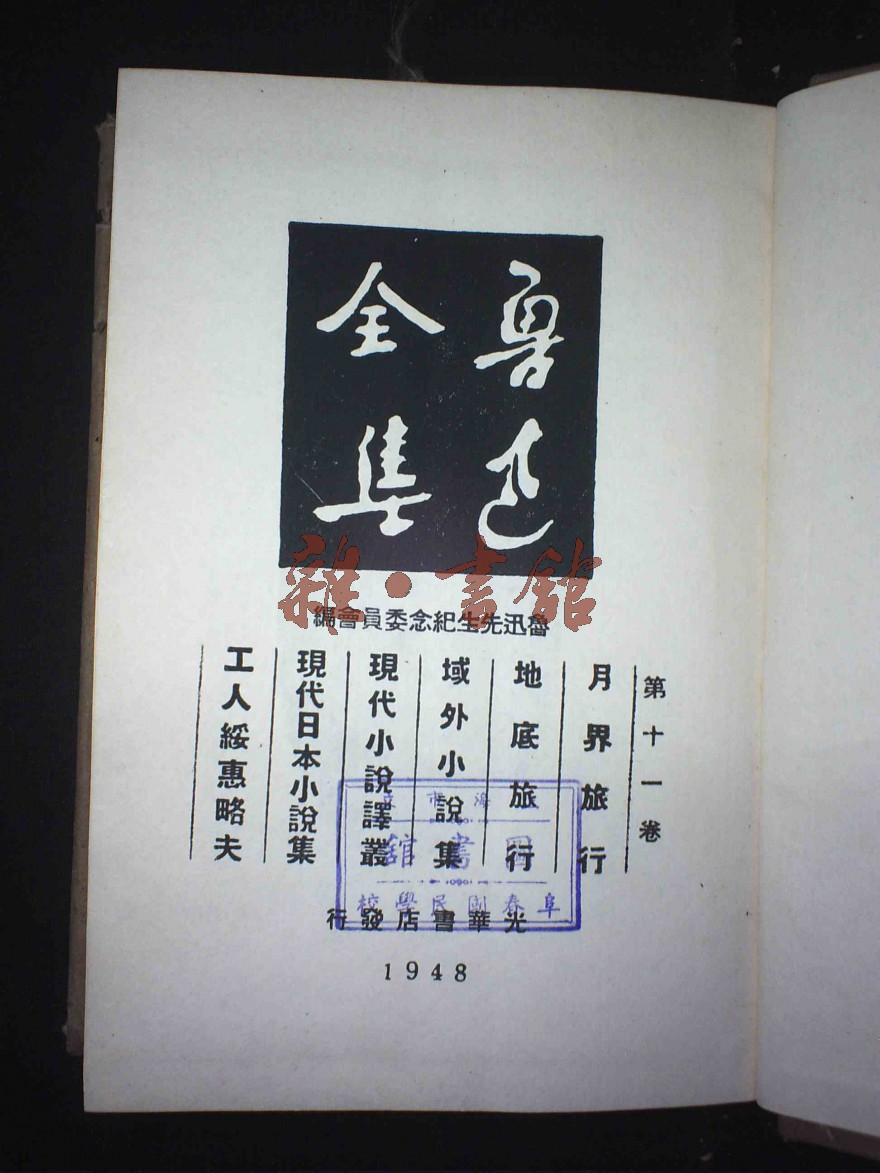 魯迅
全集
魯迅先生紀念委員會編
第十一卷
月界旅行
地底旅行
域外小說集
現代小說譯叢
現代日本小說集
工人綏惠略夫
光華書店發行
1948
雜·書館
海市立
圖書館
阜春國民學校